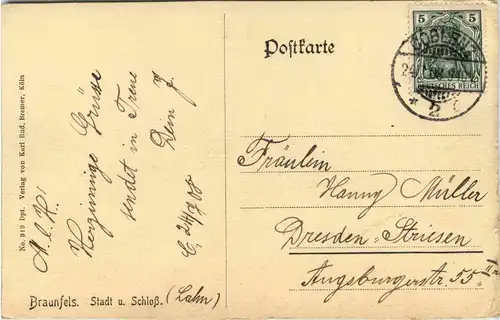 Postkarte
5 5
DEUTSCHES REICH
COBLENZ
* 2
A. l. H.!
Herzinnige Grüsse
sendet in Treue
Dein J.
C. 24/9 08
Fräulein
Hanny Müller
Dresden-Striesen
Augsburgerstr. 55 II r
Braunfels. Stadt u. Schloß. (Lahn)
No. 919 Dpt. Verlag von Karl Rud. Bremer, Köln